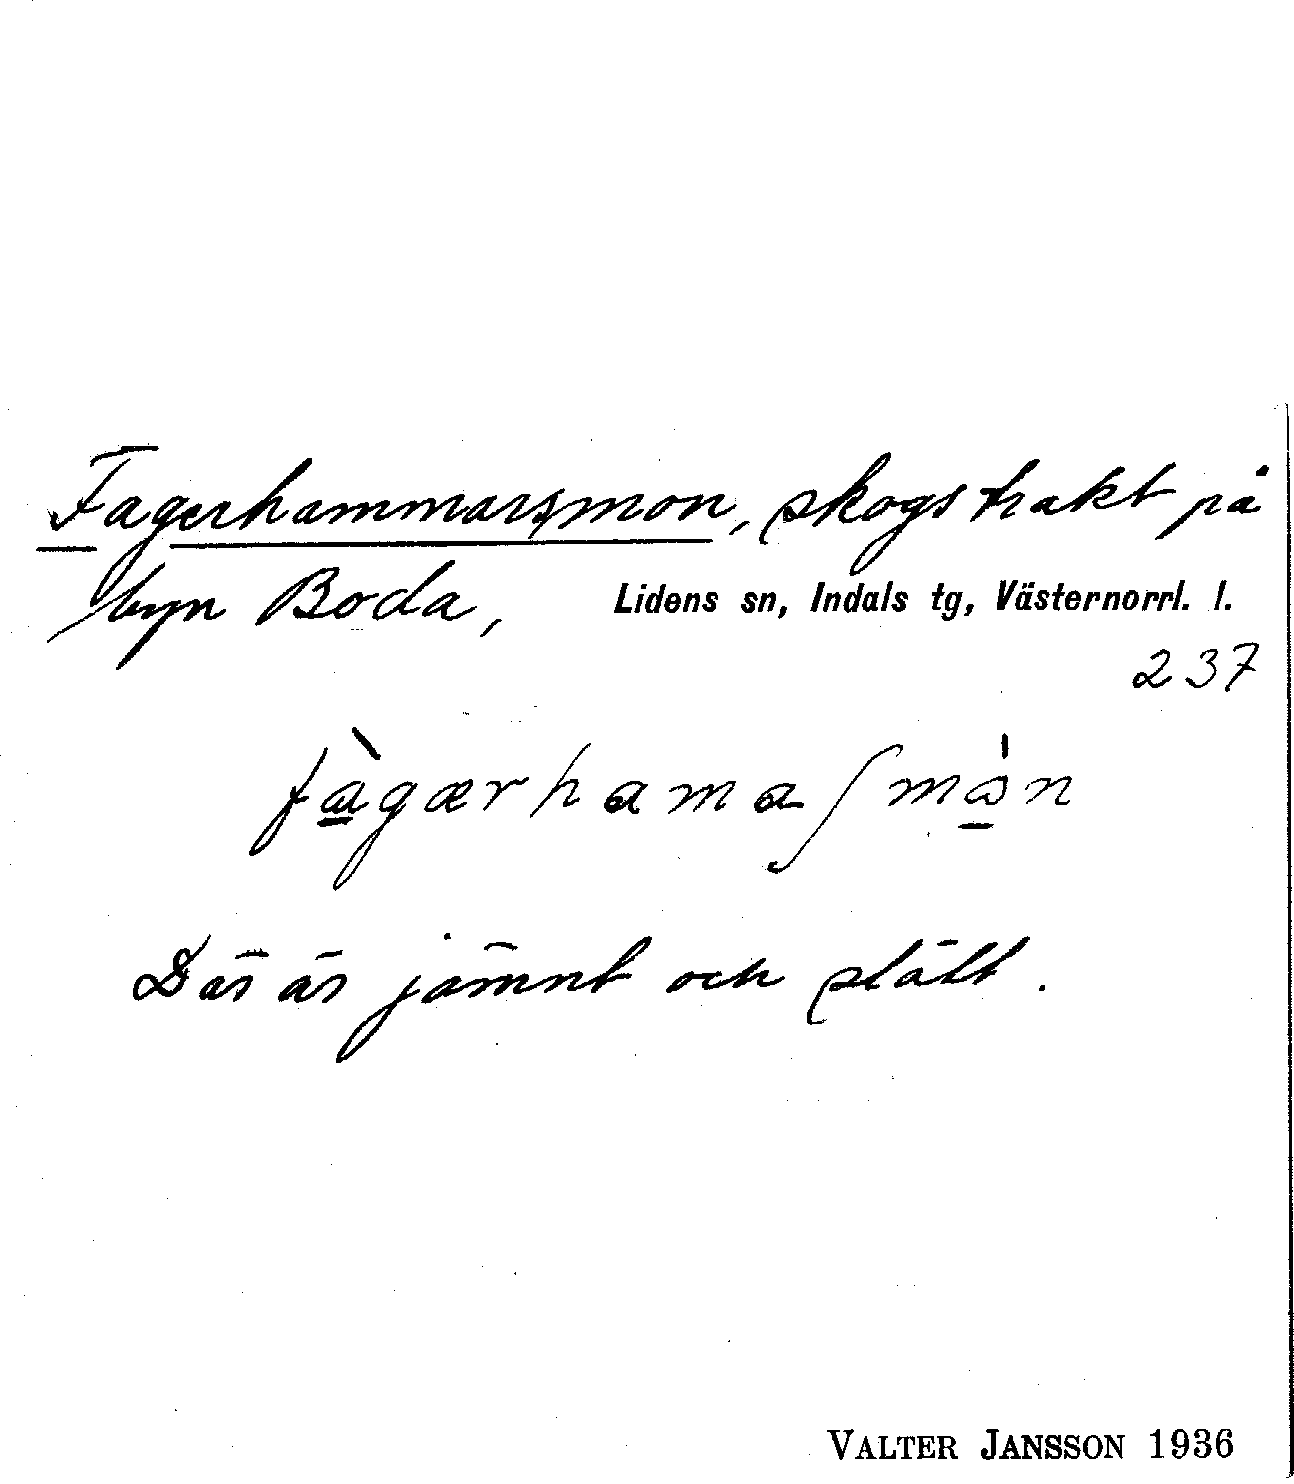 Fagerhammarsmon, skogstrakt på
byn Boda, Lidens sn, Indals tg, Västernorrl. l.
237
fàgærhamaʃmòn
Där är jämnt och slätt.
VALTER JANSSON 1936